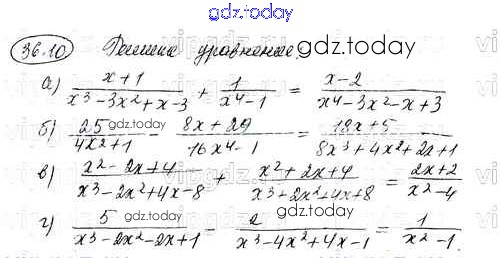 gdz.today
36.10 Решите уравнение: gdz.today
а) (x+1)/(x³-3x²+x-3) + 1/(x⁴-1) = (x-2)/(x⁴-3x²-x+3)
б) 25/(4x²+1) - (8x+29)/(16x⁴-1) = (18x+5)/(8x³+4x²+2x+1)
в) (x²-2x+4)/(x³-2x²+4x-8) + (x²+2x+4)/(x³+2x²+4x+8) = (2x+2)/(x²-4)
г) 5/(x³-2x²-2x+1) - 2/(x³-4x²+4x-1) = 1/(x²-1).